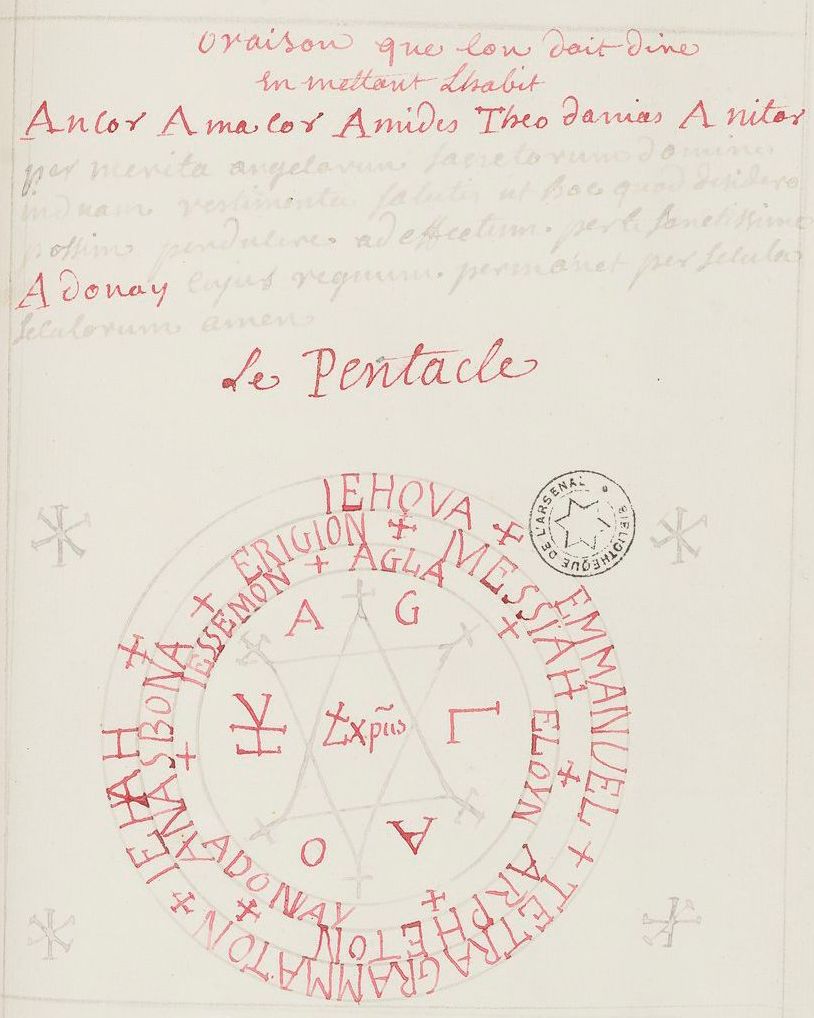 Oraison que lon doit dire
En mettant Lhabit
Ancor Amacor Amides Theodanias Anitor
per merita angelorum sacretorum domine
induam vestimenta salutis ut hoc quod desidero
possim perducere ad effectum. per te sanctissime
Adonay cujus regnum. permanet per secula
seculorum amen
Le Pentacle
IEHOVA + EMMANUEL + TETRAGRAMMATON + IEHAH +
MESSIAH + ARPHETON + ANASBONA + ERIGION +
AGLA + ELOYN ADONAY + IESSEMON +
A G
L
A
O
BIBLIOTHEQUE DE L'ARSENAL